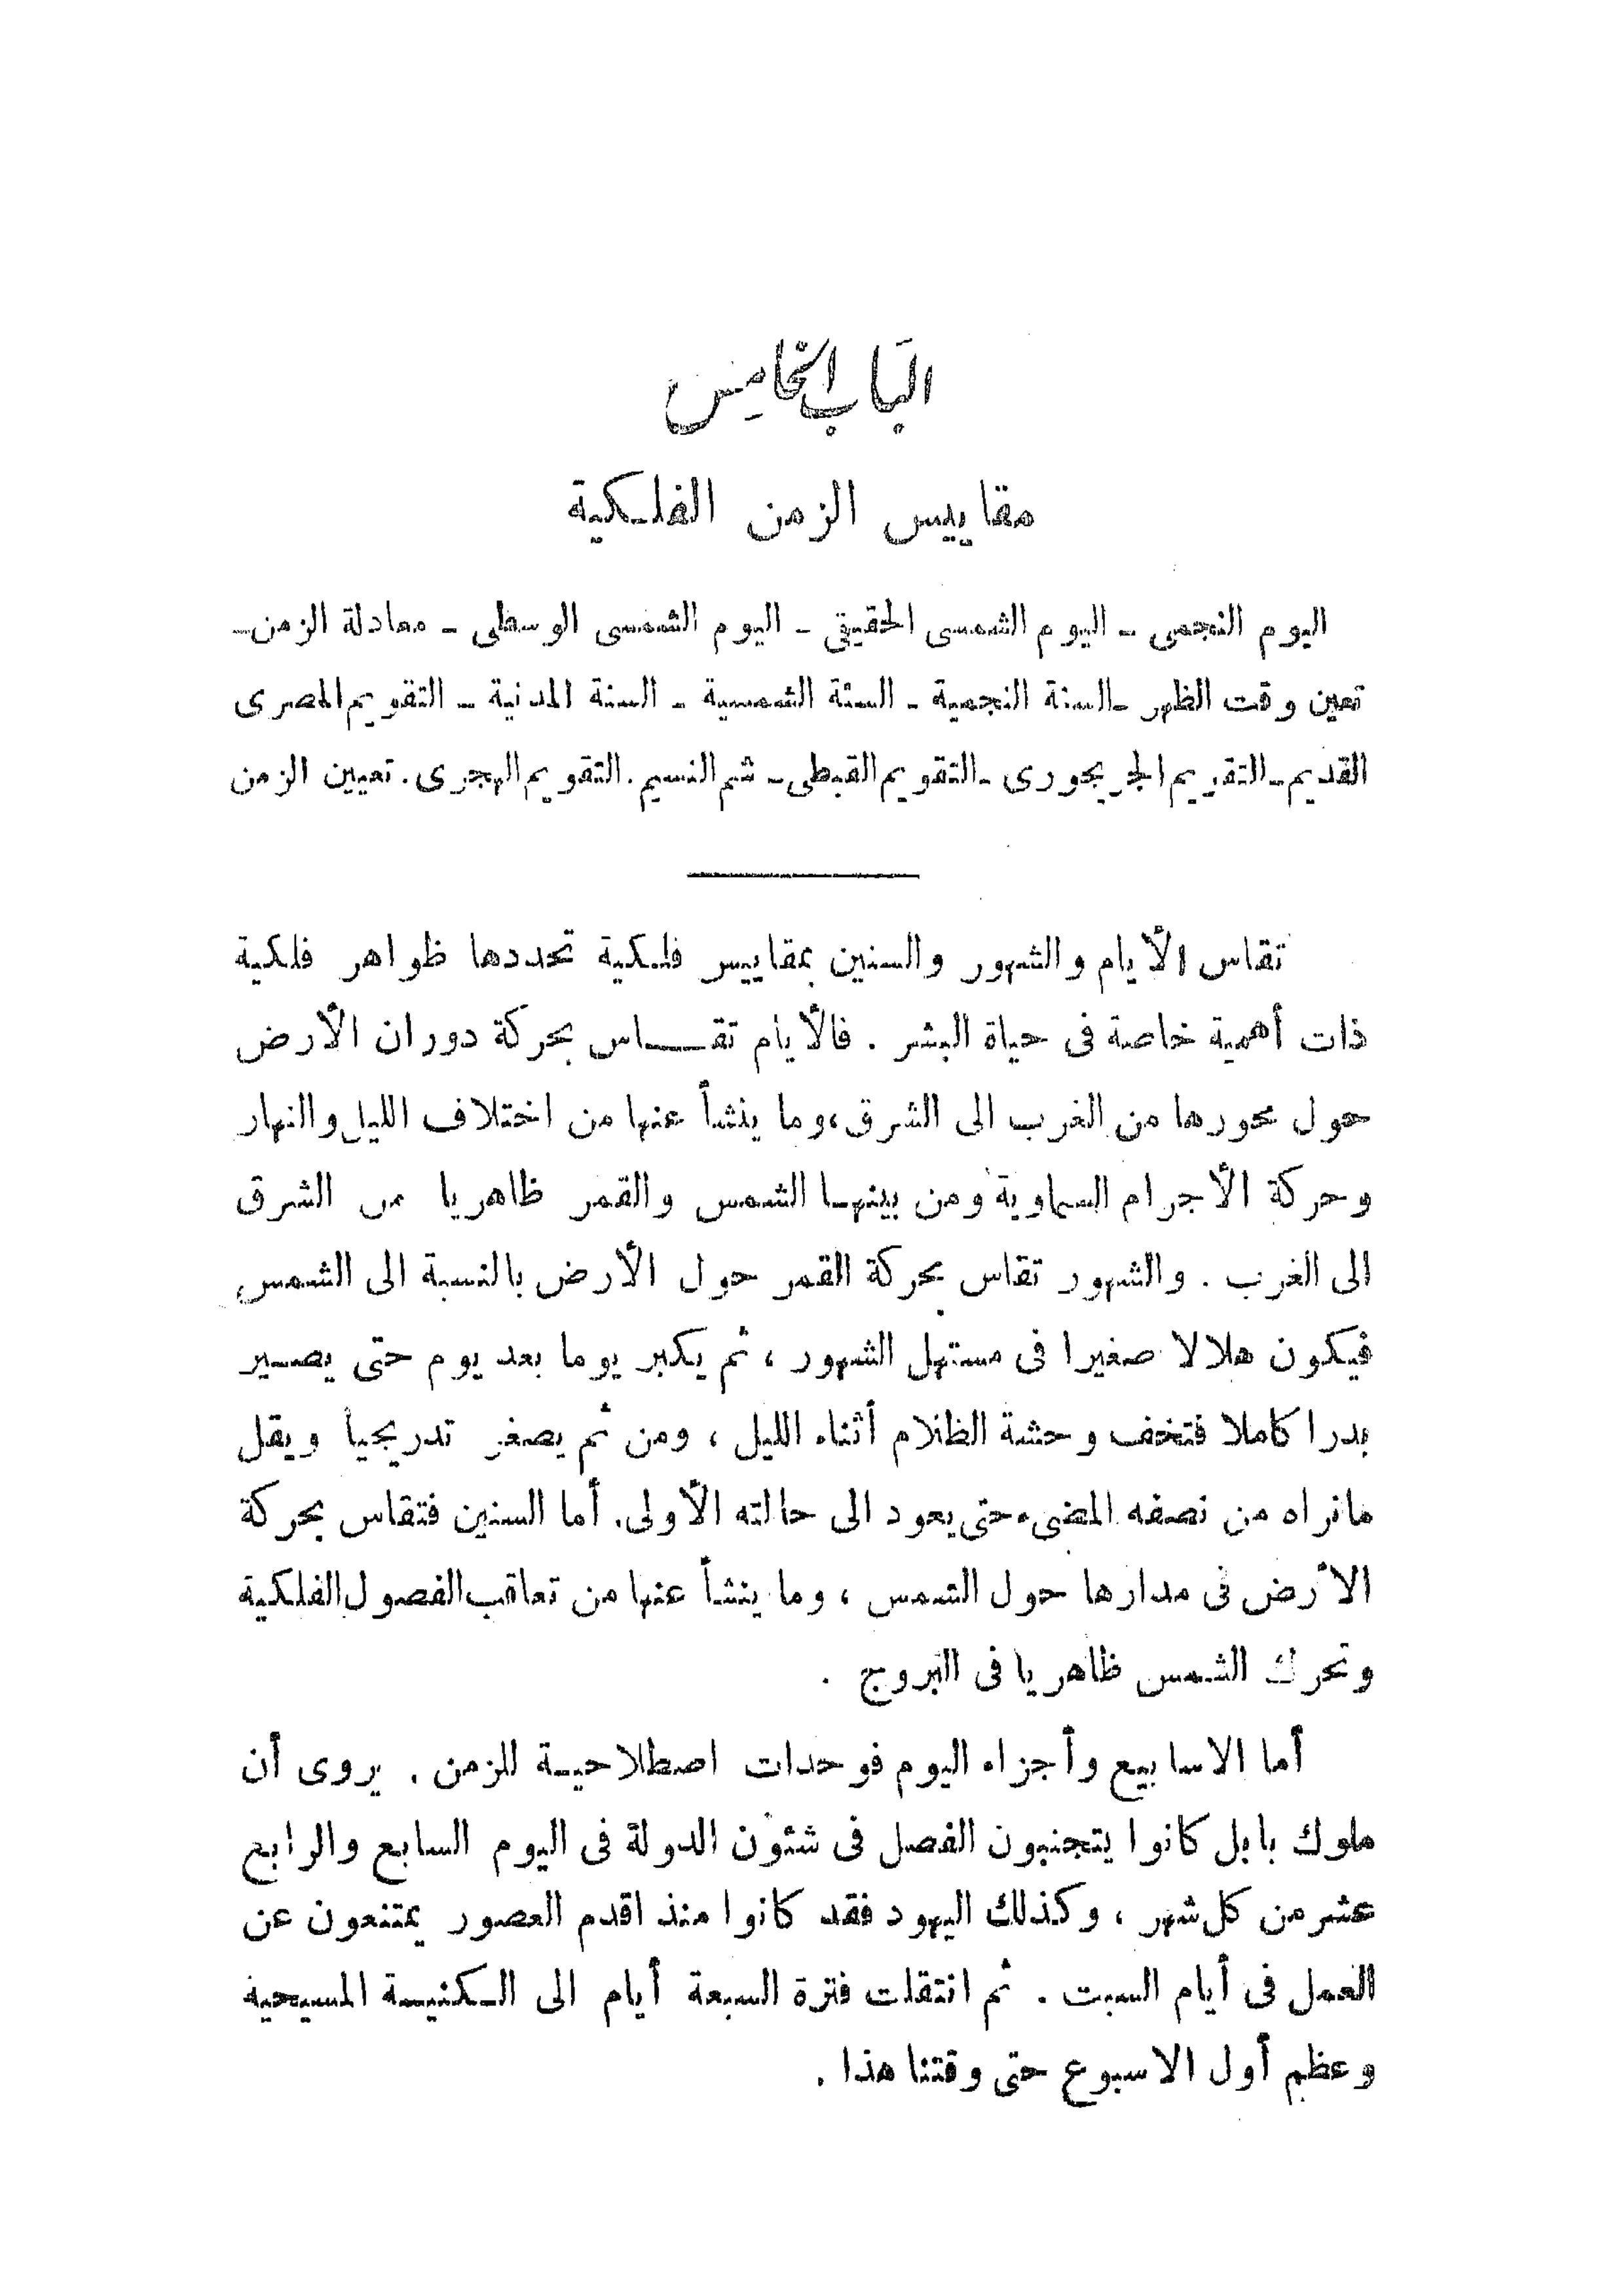 الباب الخامس
مقاييس الزمن الفلكية
اليوم النجمى - اليوم الشمسى الحقيقى - اليوم الشمسى الوسطى - معادلة الزمن -
تعين وقت الظهر - السنة النجمية - السنة الشمسية - السنة المدنية - التقويم المصرى
القديم - التقويم الجريجورى - التقويم القبطى - شم النسيم . التقويم الهجرى . تعيين الزمن
تقاس الأيام والشهور والسنين بمقاييس فلكية تحددها ظواهر فلكية
ذات أهمية خاصة فى حياة البشر . فالأيام تقاس بحركة دوران الأرض
حول محورها من الغرب الى الشرق ، وما ينشأ عنها من اختلاف الليل والنهار
وحركة الأجرام السماوية ومن بينها الشمس والقمر ظاهريا من الشرق
الى الغرب . والشهور تقاس بحركة القمر حول الأرض بالنسبة الى الشمس
فيكون هلالا صغيرا فى مستهل الشهور ، ثم يكبر يوما بعد يوم حتى يصير
بدرا كاملا فتخفف وحشة الظلام أثناء الليل ، ومن ثم يصغر تدريجيا ويقل
مانراه من نصفه المضىء حتى يعود الى حالته الأولى . أما السنين فتقاس بحركة
الأرض فى مدارها حول الشمس ، وما ينشأ عنها من تعاقب الفصول الفلكية
وتحرك الشمس ظاهريا فى البروج .
أما الاسابيع وأجزاء اليوم فوحدات اصطلاحية للزمن . يروى أن
ملوك بابل كانوا يتجنبون الفصل فى شئون الدولة فى اليوم السابع والرابع
عشر من كل شهر ، وكذلك اليهود فقد كانوا منذ اقدم العصور يمتنعون عن
العمل فى أيام السبت . ثم انتقلت فترة السبعة أيام الى الكنيسة المسيحية
وعظم أول الاسبوع حتى وقتنا هذا .